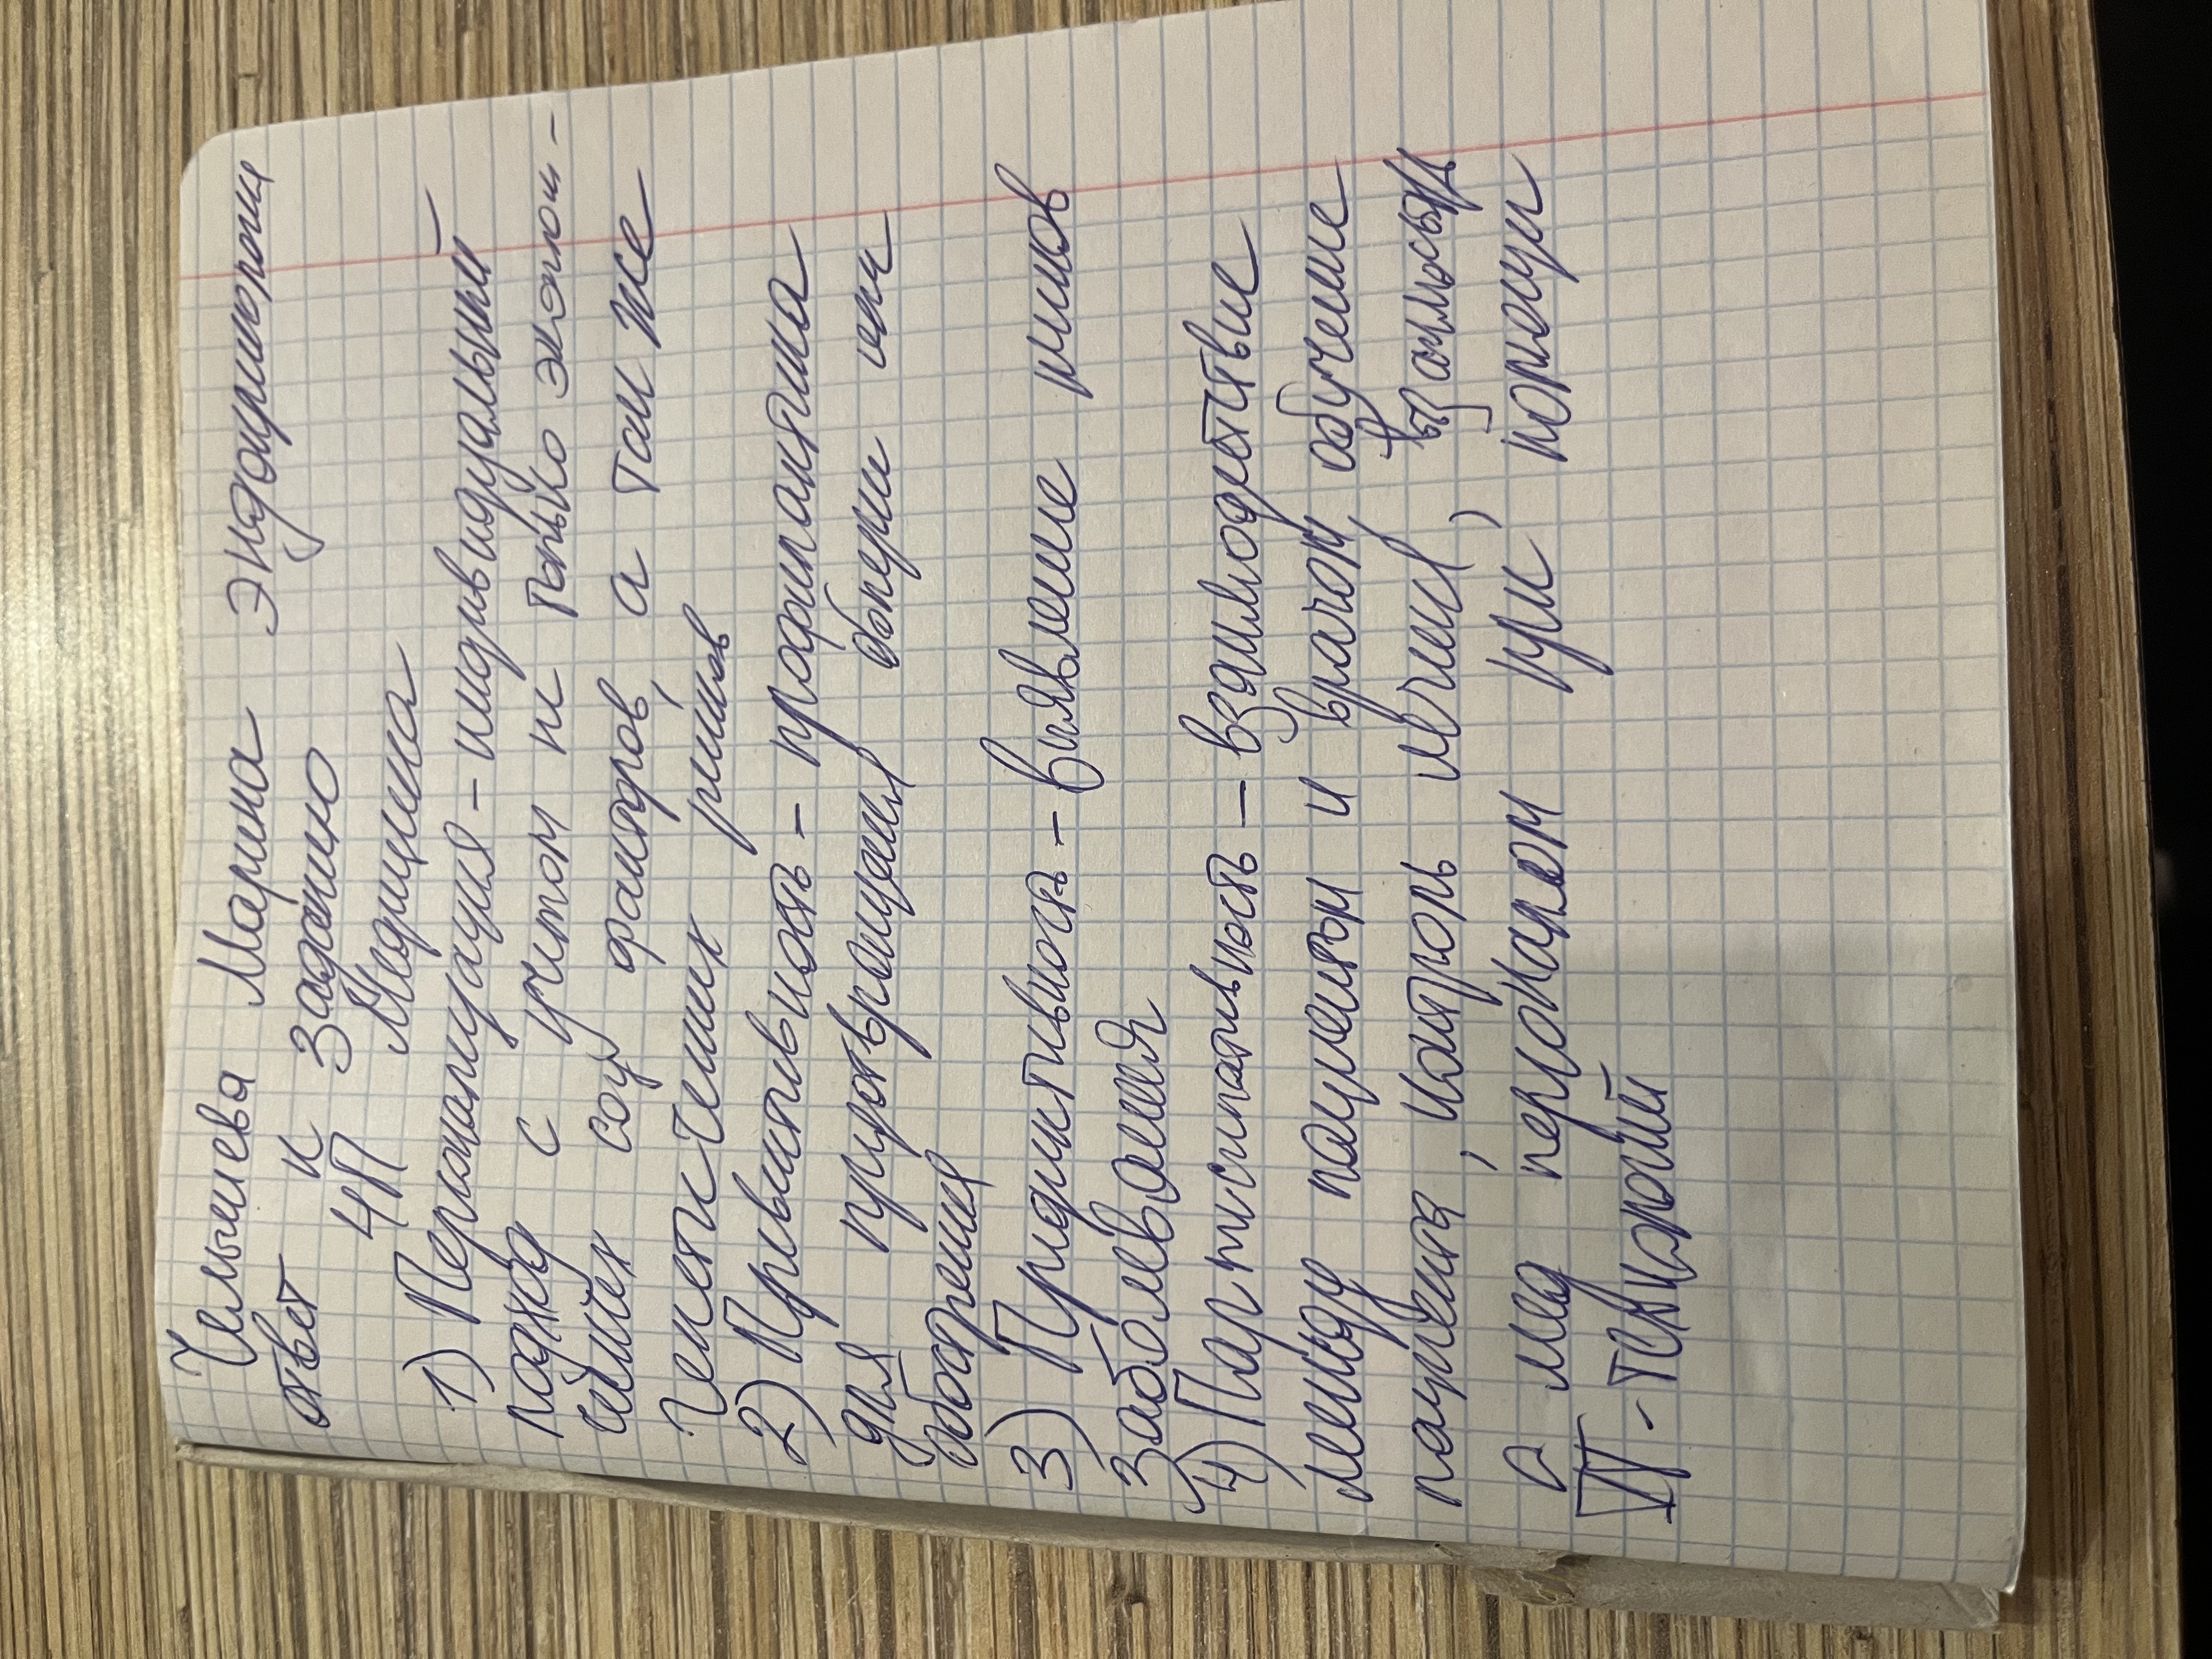 Челышева Марина Эндокринология
ответ к заданию
4П Медицина
1) Персонализация - индивидуальный
подход с учетом не только эколог-
ических соц факторов, а так же
генетических рисков
2) Превентивность - профилактика
для предотвращения или
обострения
3) Предиктивность - Выявление рисков
заболевания
4) Партисипативность - взаимодействие
между пациентом и врачом, обучение
пациента, контроль лечения,
с мед персоналом при помощи
IT-технологий